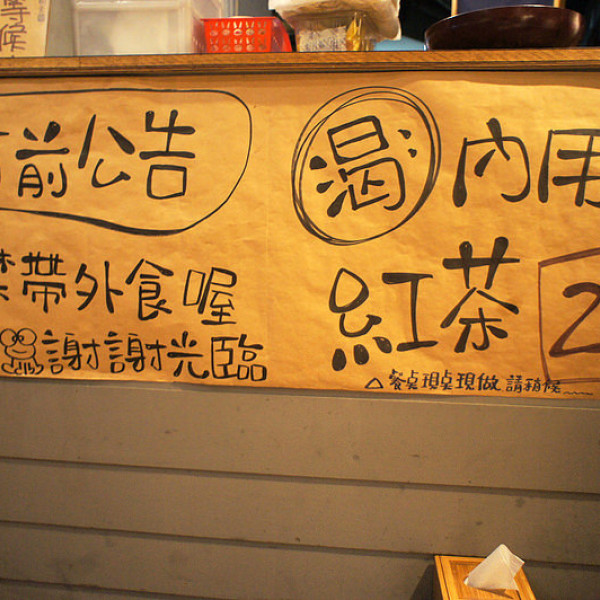 等候
前公告
禁帶外食喔
謝謝光臨
渴 內用
紅茶 2
△餐點現點現做 請稍候